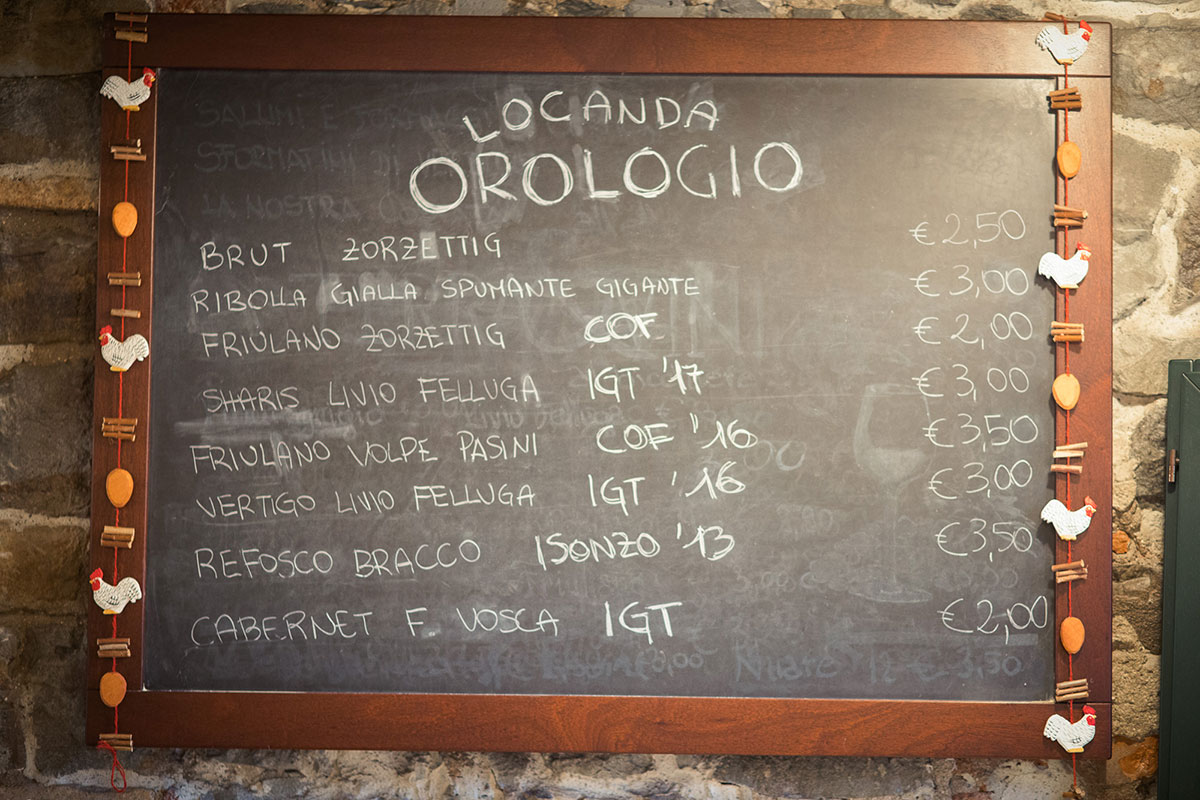 LOCANDA
OROLOGIO
BRUT ZORZETTIG €2,50
RIBOLLA GIALLA SPUMANTE GIGANTE €3,00
FRIULANO ZORZETTIG COF €2,00
SHARIS LIVIO FELLUGA IGT '17 €3,00
FRIULANO VOLPE PASINI COF '16 €3,50
VERTIGO LIVIO FELLUGA IGT '16 €3,00
REFOSCO BRACCO ISONZO '13 €3,50
CABERNET F. VOSCA IGT €2,00